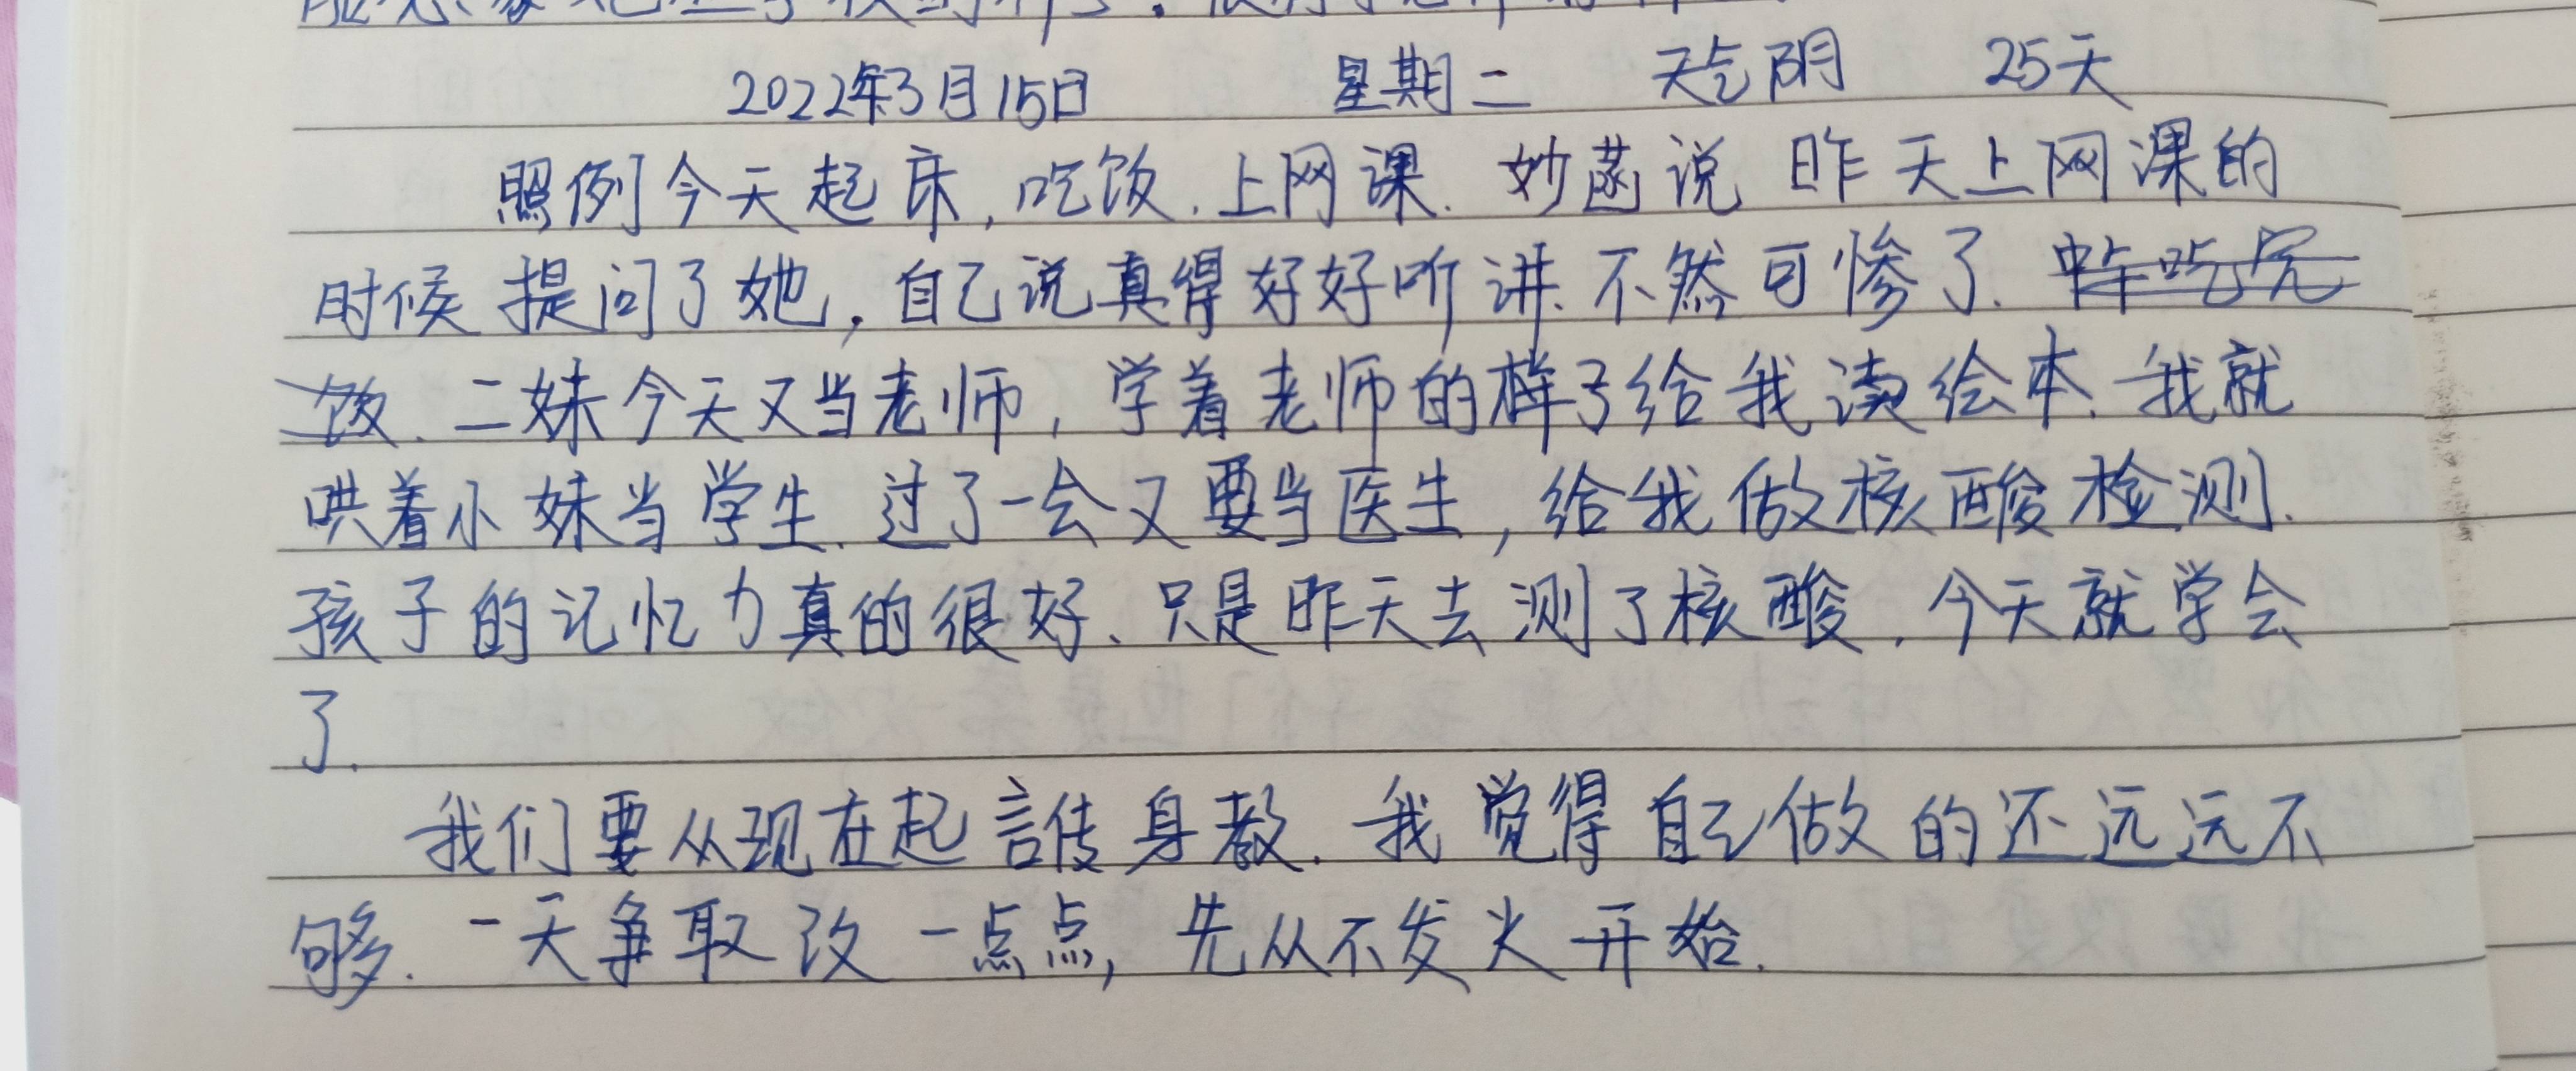 2022年3月15日 星期二 天气阴 25天
照例今天起床,吃饭.上网课.妙菡说昨天上网课的
时候提问了她,自己说真得好好听讲.不然可惨了.中午吃完
饭.二妹今天又当老师,学着老师的样子给我读绘本.我就
哄着小妹当学生.过了一会又要当医生,给我做核酸检测.
孩子的记忆力真的很好、只是昨天去测了核酸.今天就学会
了.
我们要从现在起言传身教.我觉得自己做的还远远不
够.一天争取改一点点,先从不发火开始.